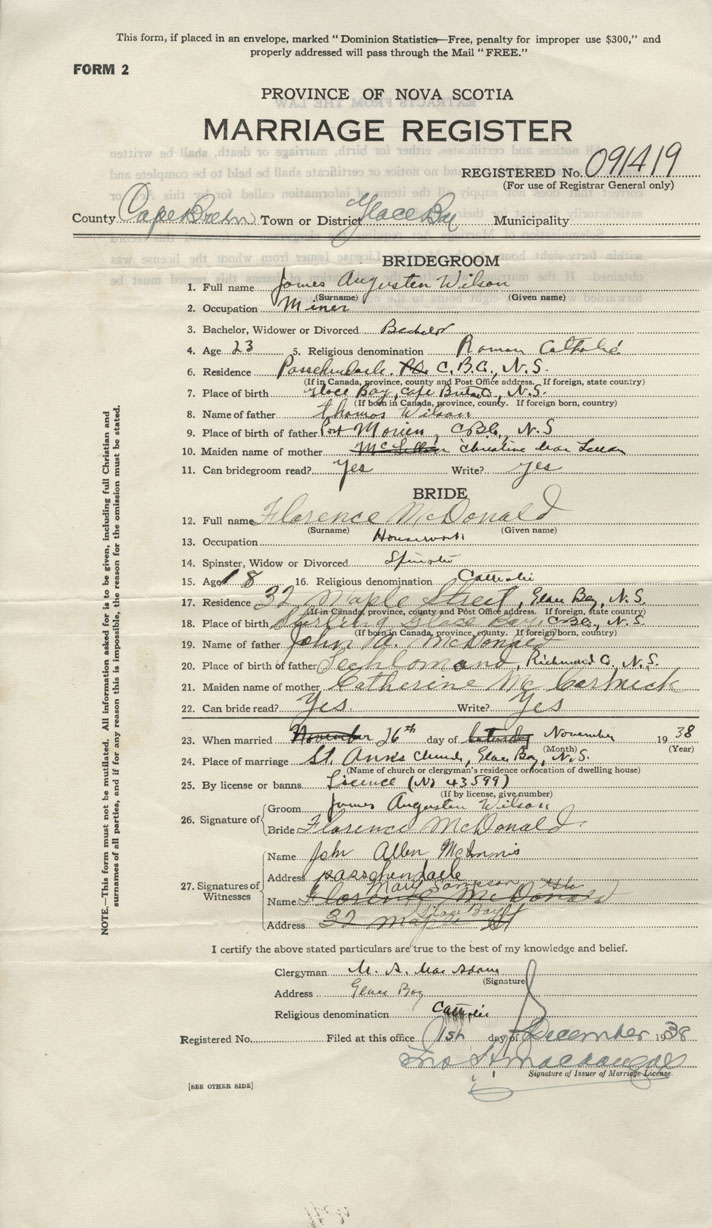 This form, if placed in an envelope, marked "Dominion Statistics—Free, penalty for improper use $300," and
properly addressed will pass through the Mail "FREE."
FORM 2
PROVINCE OF NOVA SCOTIA
MARRIAGE REGISTER
REGISTERED No. 091419
(For use of Registrar General only)
County Cape Breton Town or District Glace Bay Municipality
BRIDEGROOM
1. Full name James Augusten Wilson
(Surname) (Given name)
2. Occupation Miner
3. Bachelor, Widower or Divorced Bachelor
4. Age 23 5. Religious denomination Roman Catholic
6. Residence Passchendaele C.B.C., N.S.
(If in Canada, province, county and Post Office address. If foreign, state country)
7. Place of birth Glace Bay, Cape Breton, N.S.
(If born in Canada, province, county. If foreign born, country)
8. Name of father Thomas Wilson
9. Place of birth of father Port Morien, C.B.C., N.S
10. Maiden name of mother Christine
11. Can bridegroom read? Yes Write? yes
BRIDE
12. Full name Florence McDonald
(Surname) (Given name)
13. Occupation Housework
14. Spinster, Widow or Divorced Spinster
15. Age 18 16. Religious denomination Catholic
17. Residence 32 Maple Street, Glace Bay, N.S.
(If in Canada, province, county and Post Office address. If foreign, state country)
18. Place of birth Sterling Glace Bay, C.B.C., N.S.
(If born in Canada, province, county. If foreign born, country)
19. Name of father John A. McDonald
20. Place of birth of father Lochlomond, Richmond C., N.S.
21. Maiden name of mother Catherine McCormick
22. Can bride read? Yes Write? Yes
23. When married November 26th day of Saturday November 1938
(Month) (Year)
24. Place of marriage St. Ann's Church, Glace Bay, N.S.
(Name of church or clergyman's residence or location of dwelling house)
25. By license or banns Licence (No 43599)
(If by license, give number)
26. Signature of
Groom James Augusten Wilson
Bride Florence McDonald
27. Signatures of Witnesses
Name John Allen McInnis
Address passchendaele
Mary
Name Florence McDonald
Glace Bay
Address 32 Maple St
I certify the above stated particulars are true to the best of my knowledge and belief.
Clergyman M. A. MacAdam
(Signature)
Address Glace Bay
Religious denomination Catholic
Registered No. Filed at this office 1st day of December 1938
Jno
Signature of Issuer of Marriage License.
[SEE OTHER SIDE]
NOTE.—This form must not be mutilated. All information asked for is to be given, including full Christian and
surnames of all parties, and if for any reason this is impossible, the reason for the omission must be stated.